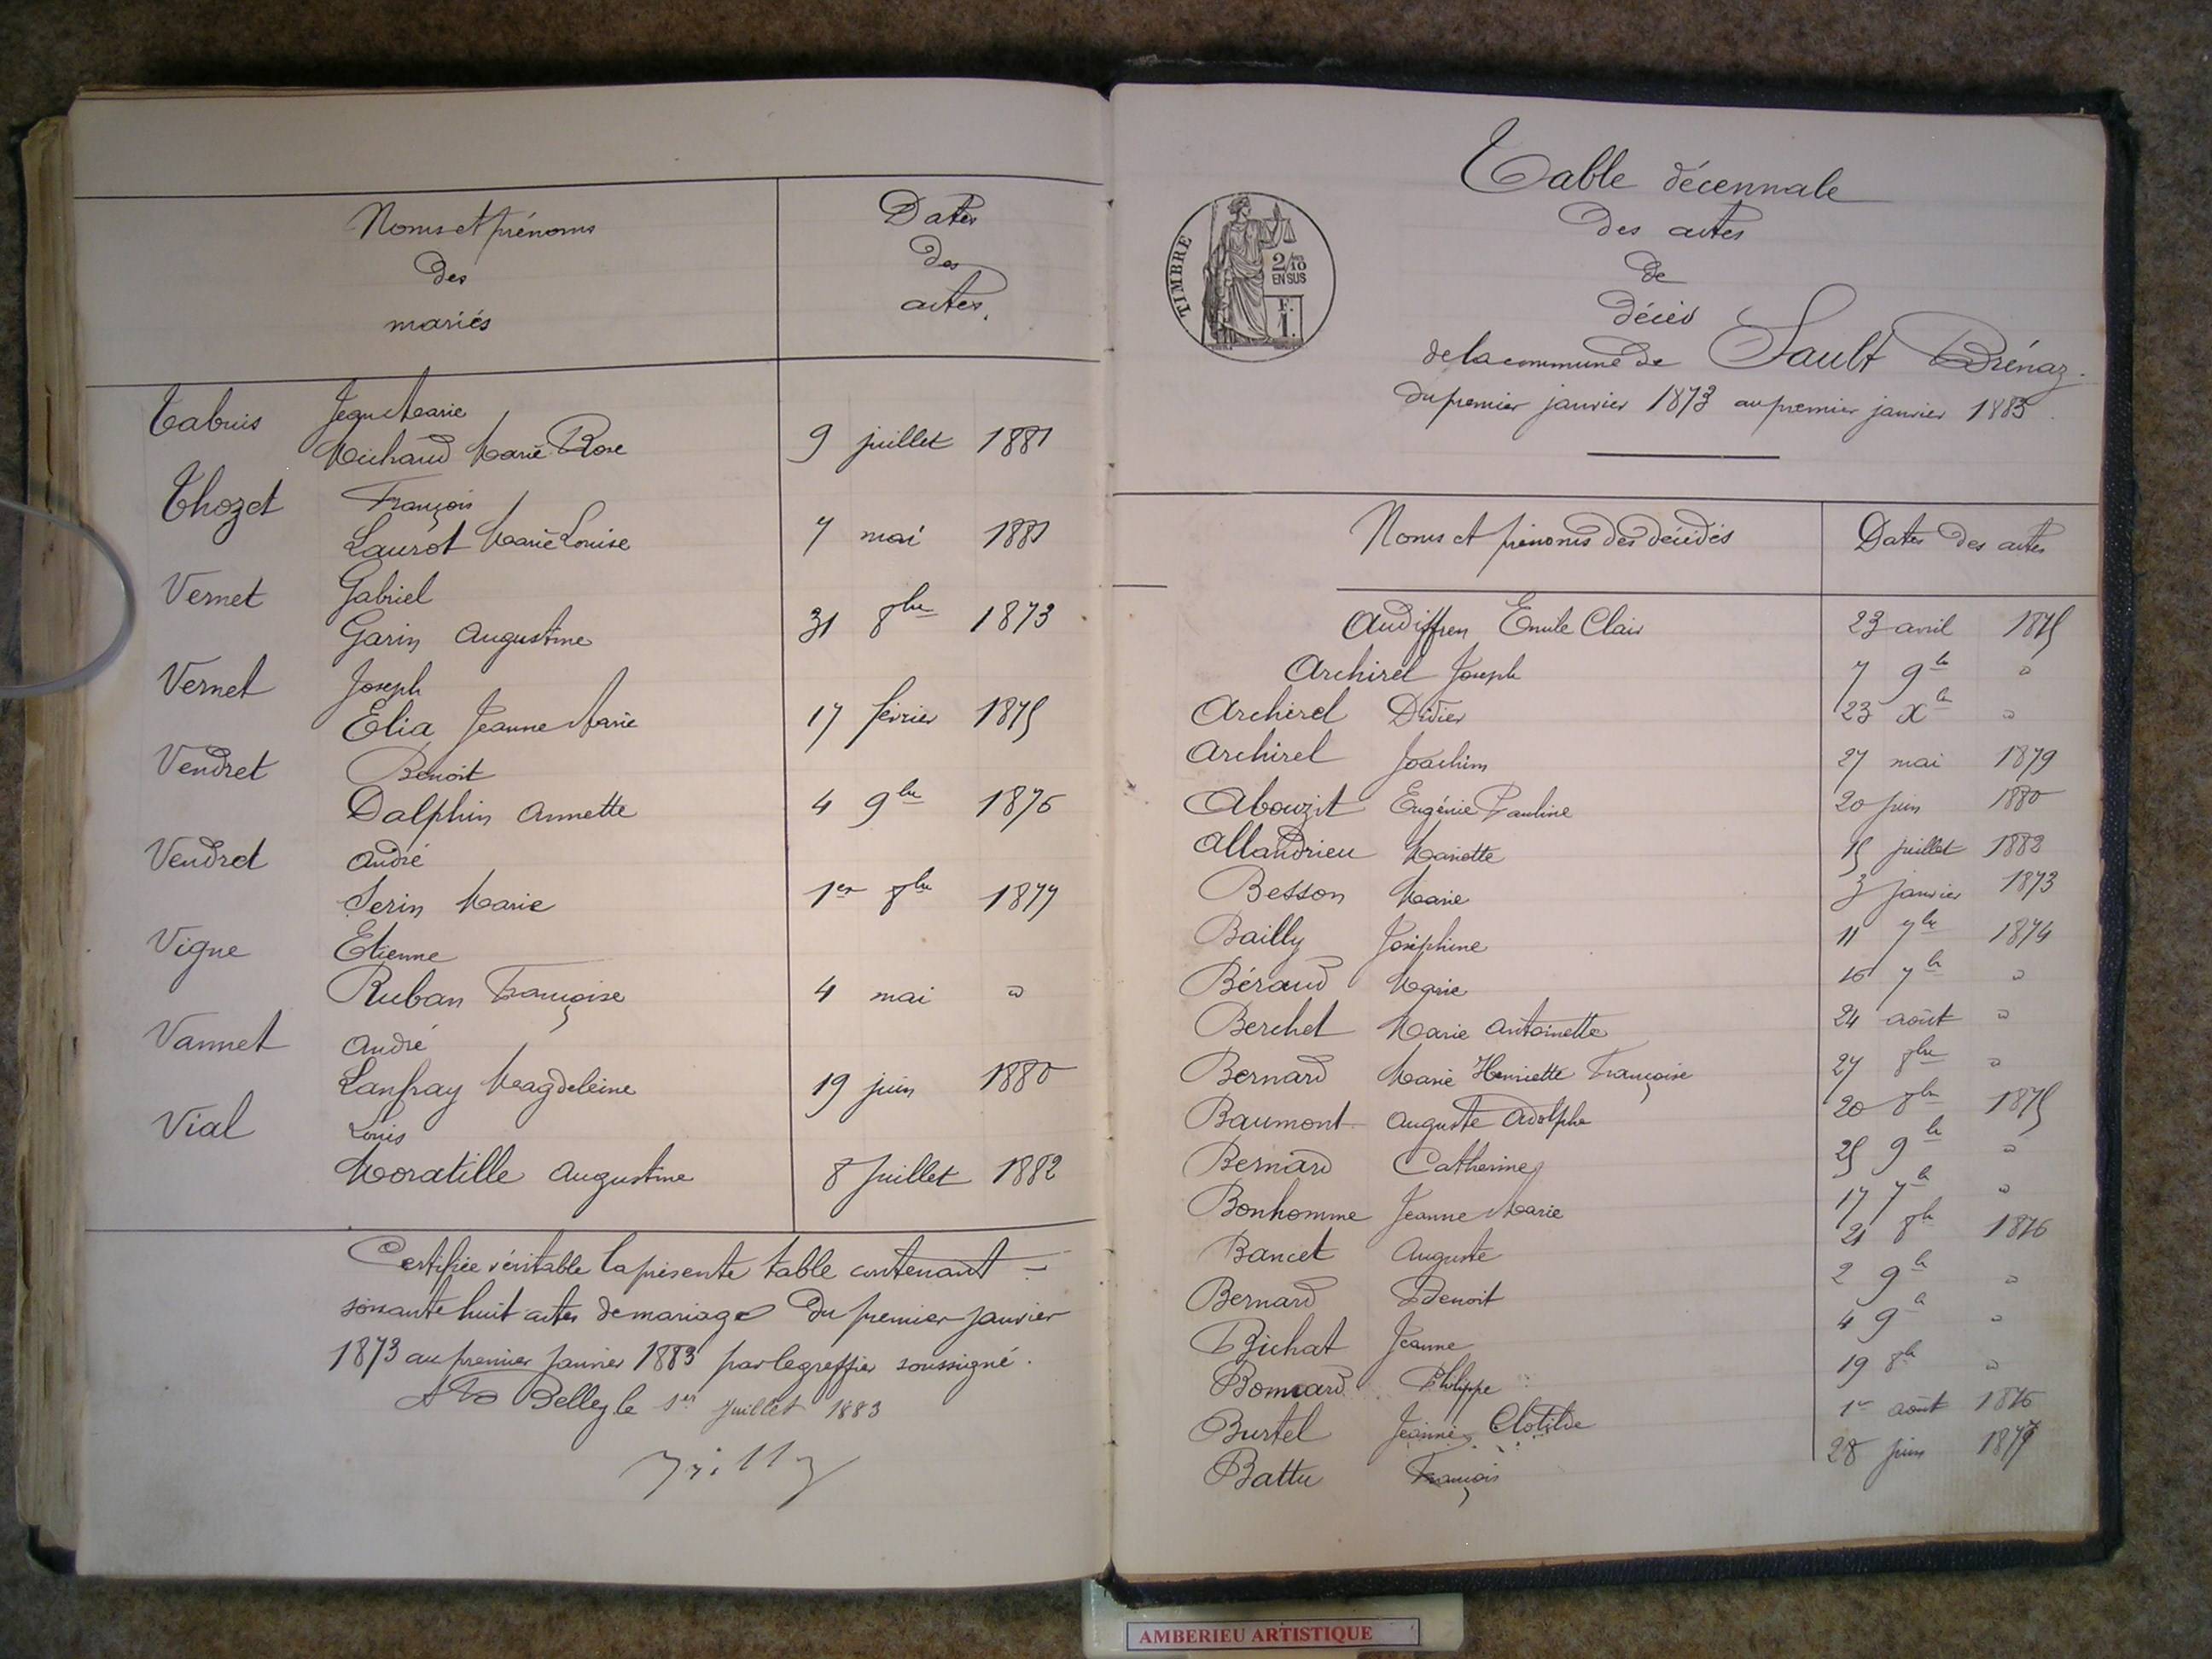 Noms et prénoms
des
mariés
Dates
des
actes.
Tabuis Jean Marie
Michaud Marie Rose 9 juillet 1881
Thozet François
Laurot Marie Louise 7 mai 1881
Vernet Gabriel
Garin Augustine 31 8bre 1873
Vernet Joseph
Elia Jeanne Marie 17 février 1875
Vendret Benoit
Dalphin Annette 4 9bre 1876
Vendret André
Serin Marie 1er 8bre 1877
Vigne Etienne
Ruban Françoise 4 mai "
Vannet André
Lanfray Magdeleine 19 juin 1880
Vial Louis
Moratille Augustine 8 Juillet 1882
Certifiée véritable la présente table contenant
soixante huit actes de mariage du premier janvier
1873 au premier janvier 1883 par le greffier soussigné.
Belley le 1er Juillet 1883
Table décennale
des actes
de
décès
de la commune de Sault Brénaz.
du premier janvier 1873 au premier janvier 1883.
TIMBRE
2/10
EN SUS
F.
1.
Noms et prénoms des décédés Dates des actes
Audiffren Emile Clair 23 avril 1875
Archirel Joseph 7 9bre "
Archirel Didier 23 Xbre "
Archirel Joachim 27 mai 1879
Abouzit Eugénie Pauline 20 juin 1880
Allandrieu Mariette 15 juillet 1882
Besson Marie 3 janvier 1873
Bailly Joséphine 11 7bre 1874
Béraud Marie 16 7bre "
Berchet Marie Antoinette 24 août "
Bernard Marie Henriette Françoise 27 8bre "
Baumont Auguste Adolphe 20 8bre 1875
Bernard Catherine 25 9bre "
Bonhomme Jeanne Marie 17 7bre "
Bancet Auguste 21 8bre 1876
Bernard Benoit 2 9bre "
Bichat Jeanne 4 9bre "
Bonnard Philippe 19 8bre "
Burtel Jeanne Clotilde 1er août 1876
Battu François 28 juin 1877
AMBERIEU ARTISTIQUE